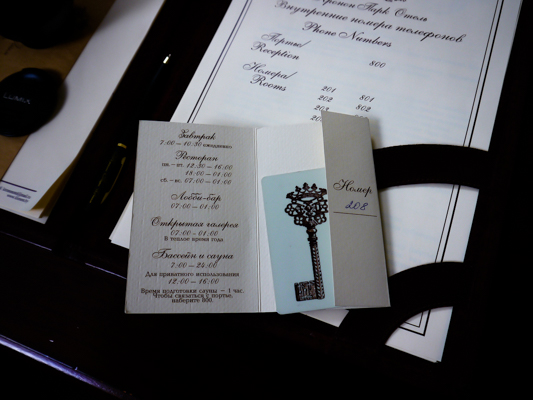 Парк Отель
Внутренние номера телефонов
Phone Numbers
Портье/
Reception
800
Номера/
Rooms
201 801
202 802
Завтрак
7:00 – 10:30 ежедневно
Ресторан
пн.–пт. 12:30 – 16:00
18:00 – 01:00
сб.–вс. 07:00 – 01:00
Лобби-бар
07:00 – 01:00
Открытая галерея
07:00 – 01:00
В теплое время года
Бассейн и сауна
7:00 – 24:00
Для приватного использования
12:00 – 16:00
Время подготовки сауны – 1 час.
Чтобы связаться с портье,
наберите 800.
Номер
208